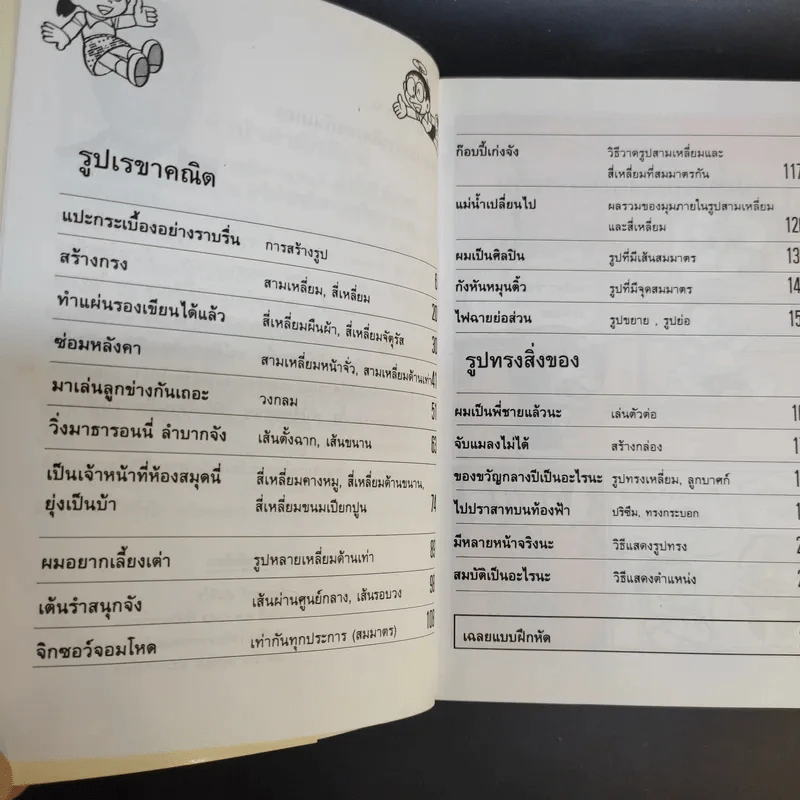 รูปเรขาคณิต
แปะกระเบื้องอย่างราบรื่น การสร้างรูป 6
สร้างกรง สามเหลี่ยม, สี่เหลี่ยม 20
ทำแผ่นรองเขียนได้แล้ว สี่เหลี่ยมผืนผ้า, สี่เหลี่ยมจัตุรัส 30
ซ่อมหลังคา สามเหลี่ยมหน้าจั่ว, สามเหลี่ยมด้านเท่า 41
มาเล่นลูกข่างกันเถอะ วงกลม 51
วิ่งมาธารอนนี่ ลำบากจัง เส้นตั้งฉาก, เส้นขนาน 63
เป็นเจ้าหน้าที่ห้องสมุดนี่ สี่เหลี่ยมคางหมู, สี่เหลี่ยมด้านขนาน,
ยุ่งเป็นบ้า สี่เหลี่ยมขนมเปียกปูน 74
ผมอยากเลี้ยงเต่า รูปหลายเหลี่ยมด้านเท่า 89
เต้นรำสนุกจัง เส้นผ่านศูนย์กลาง, เส้นรอบวง 98
จิกซอว์จอมโหด เท่ากันทุกประการ (สมมาตร) 108
ก๊อบปี้เก่งจัง วิธีวาดรูปสามเหลี่ยมและ
สี่เหลี่ยมที่สมมาตรกัน 117
แม่น้ำเปลี่ยนไป ผลรวมของมุมภายในรูปสามเหลี่ยม
และสี่เหลี่ยม 12
ผมเป็นศิลปิน รูปที่มีเส้นสมมาตร 13
กังหันหมุนติ้ว รูปที่มีจุดสมมาตร 14
ไฟฉายย่อส่วน รูปขยาย , รูปย่อ 15
รูปทรงสิ่งของ
ผมเป็นพี่ชายแล้วนะ เล่นตัวต่อ 1
จับแมลงไม่ได้ สร้างกล่อง 1
ของขวัญกลางปีเป็นอะไรนะ รูปทรงเหลี่ยม, ลูกบาศก์ 1
ไปปราสาทบนท้องฟ้า ปริซึม, ทรงกระบอก 1
มีหลายหน้าจริงนะ วิธีแสดงรูปทรง 2
สมบัติเป็นอะไรนะ วิธีแสดงตำแหน่ง 2
เฉลยแบบฝึกหัด